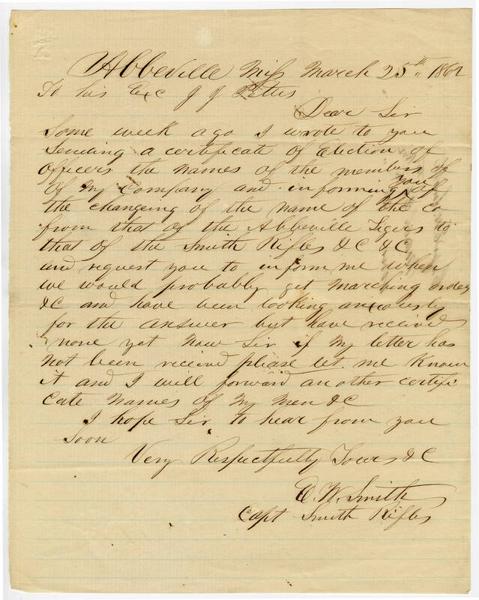 Abbeville Miss March 25th 1862
To his Exc J J Pettus
Dear Sir
Some week ago I wrote to you
sending a certificate of election of
officers the names of the members of
of my Company and informing you of
the changing of the name of the co
from that of the Abbeville Tigers to
that of the Smith Rifles &C &C
and request you to inform me when
we would probably get marching orders
&C and have been looking anxiously
for the answer but have received
none yet now Sir if my letter has
not been received please let me know
it and I will forward another certifi
cate names of my men &C
I hope Sir to hear from you
soon
Very Respectfully Yours &C
W. Smith
Capt Smith Rifles